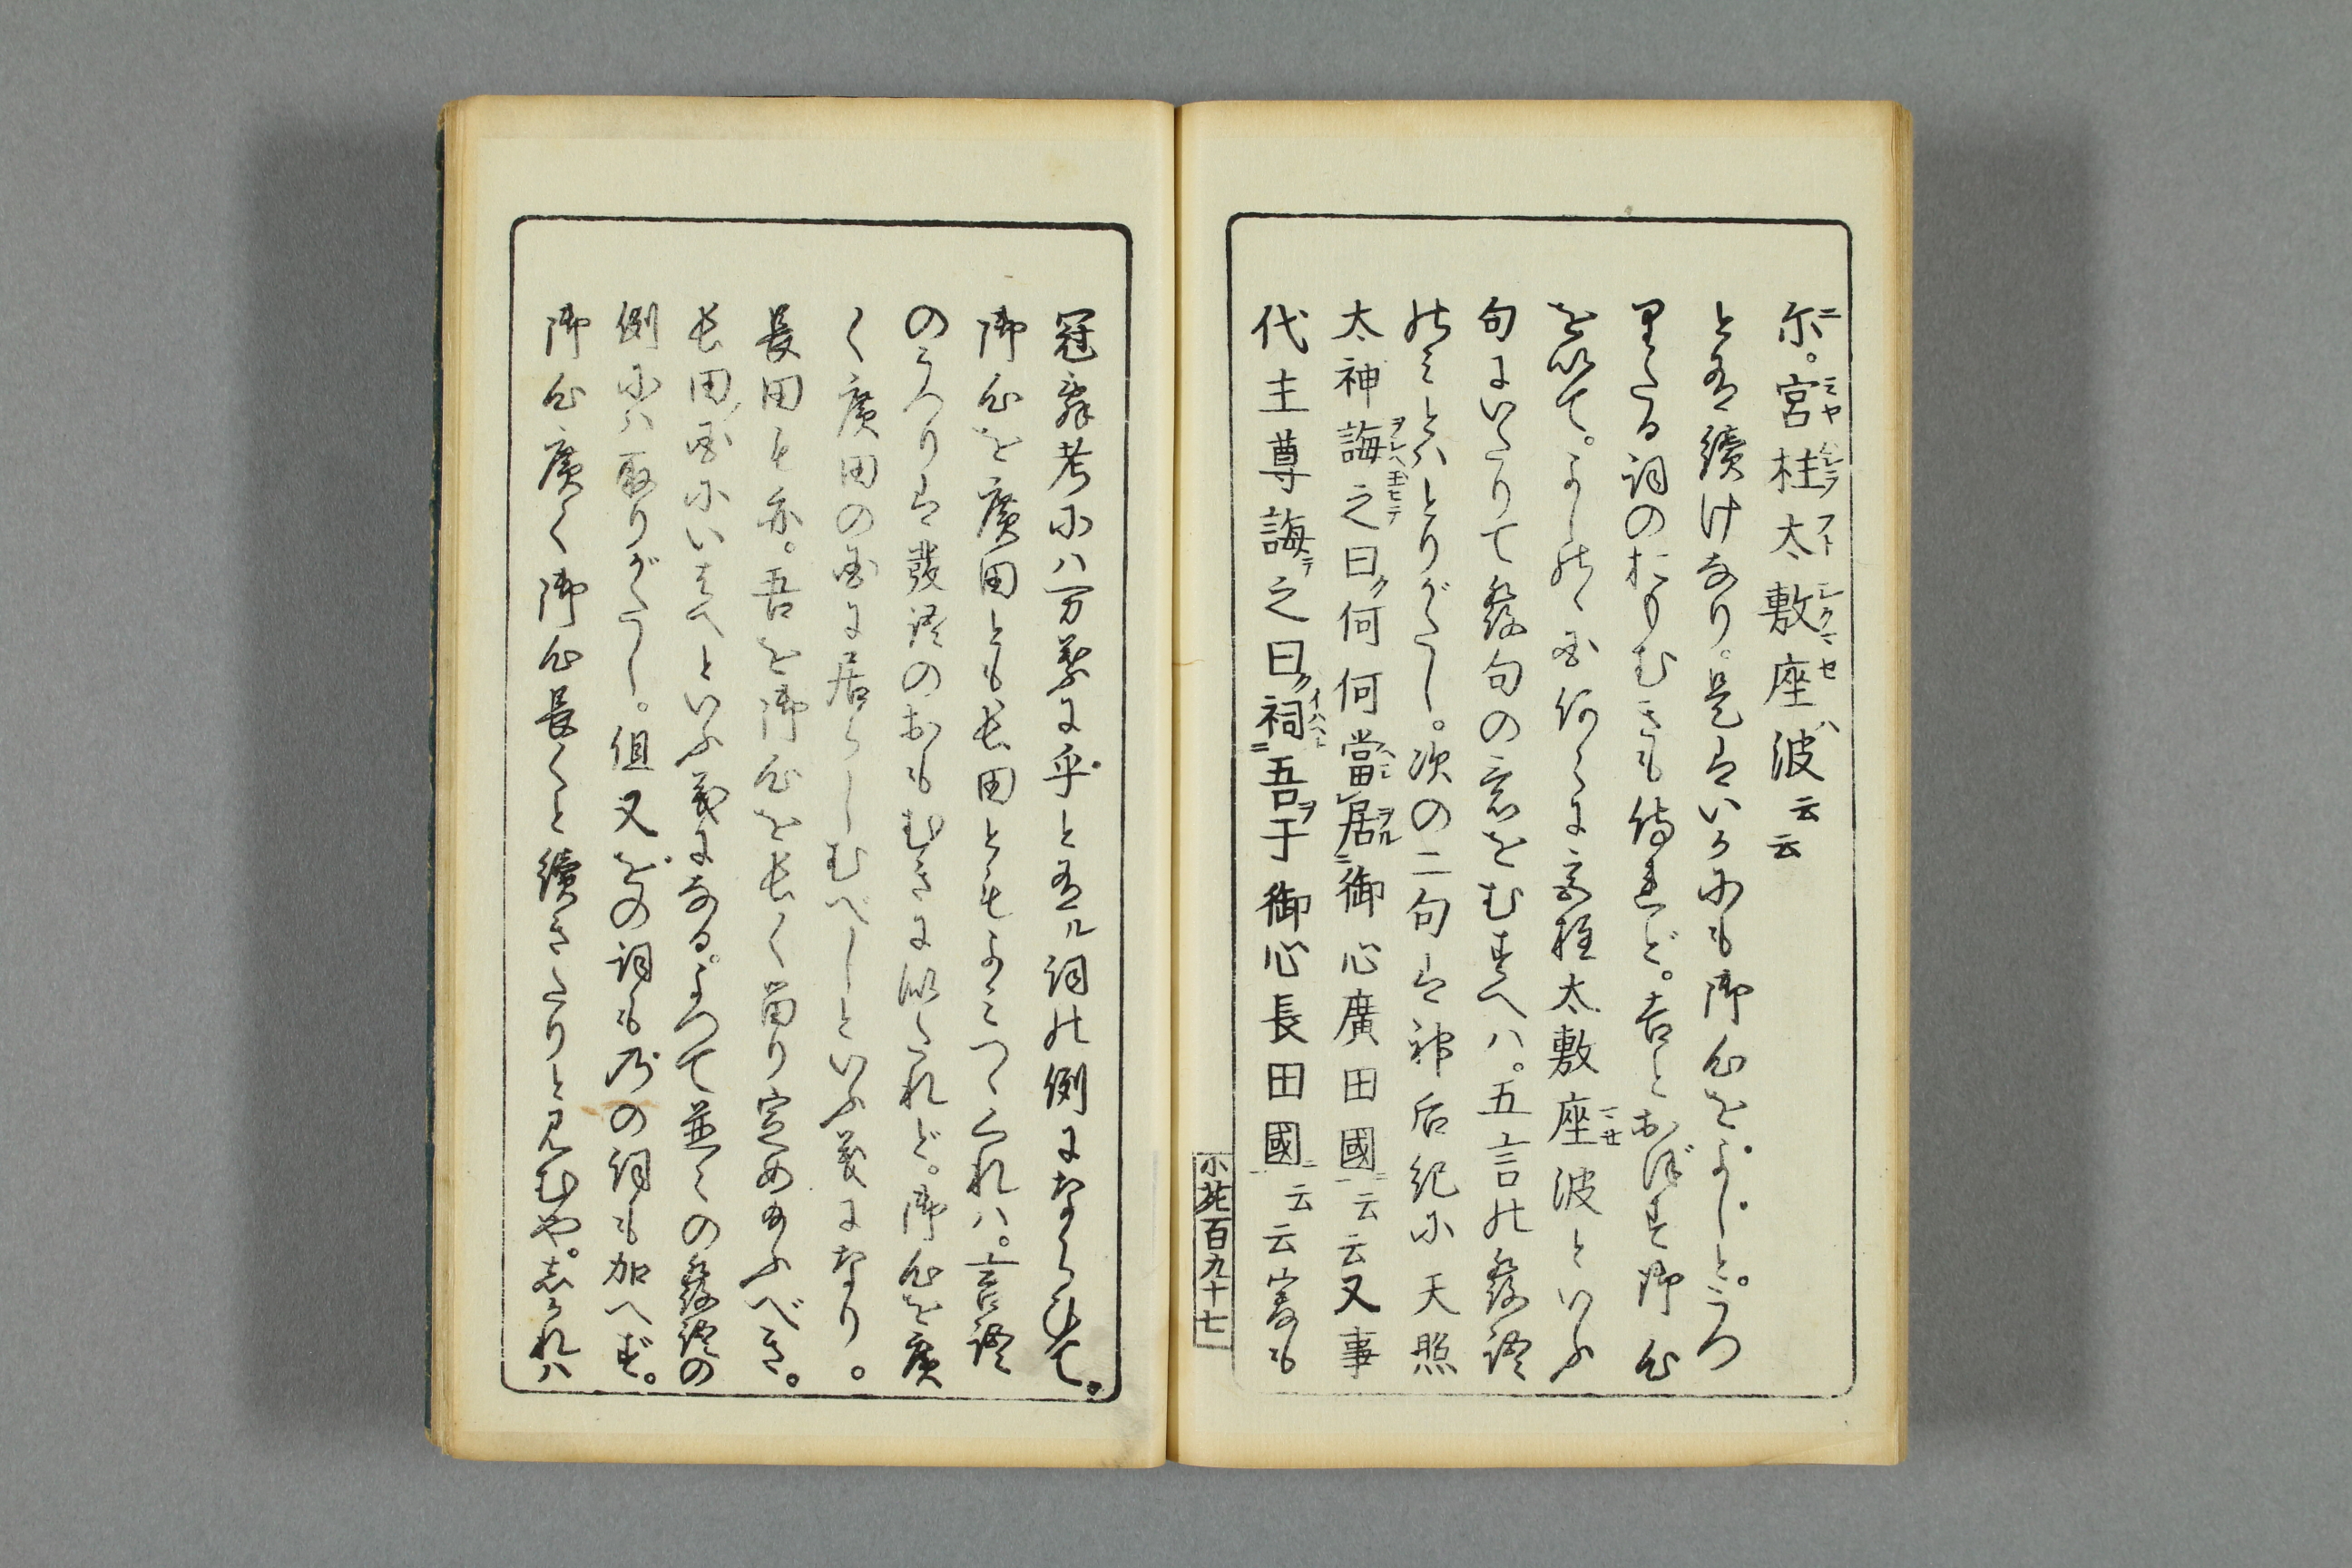 尓。宮柱太敷座波云云
と有續けなり。是はいかにも御心をよしと。うつ
りたる詞のおもむきも侍れど。吉とおぼす御心
を以て。よしのゝ國何々に宮柱太敷座波といふ
句にいたりて發句の意をむすべハ。五言の發語
のミとハとりがたし。次の二句は神后紀に天照
太神誨之曰何何當居御心廣田國云云又事
代主尊誨之曰祠吾于御心長田國云云実も
小祝百九十七
冠辞考にハ万葉に乎と有ル詞の例にならひて。
御心を廣田とも長田ともよミつゝくれハ。言語
のうつりは發語のおもむきに似たれど。御心を廣
く廣田の國に居らしむべしといふ義になり。
長田も亦。吾を御心を長く留り定め給ふべき。
長田ノ國にいませといふ義になる。よつて並々の發語の
例にハ取りがたし。但又をの詞も乃の詞も加へず。
御心廣く御心長くと續きたりと見むや。志かれハ